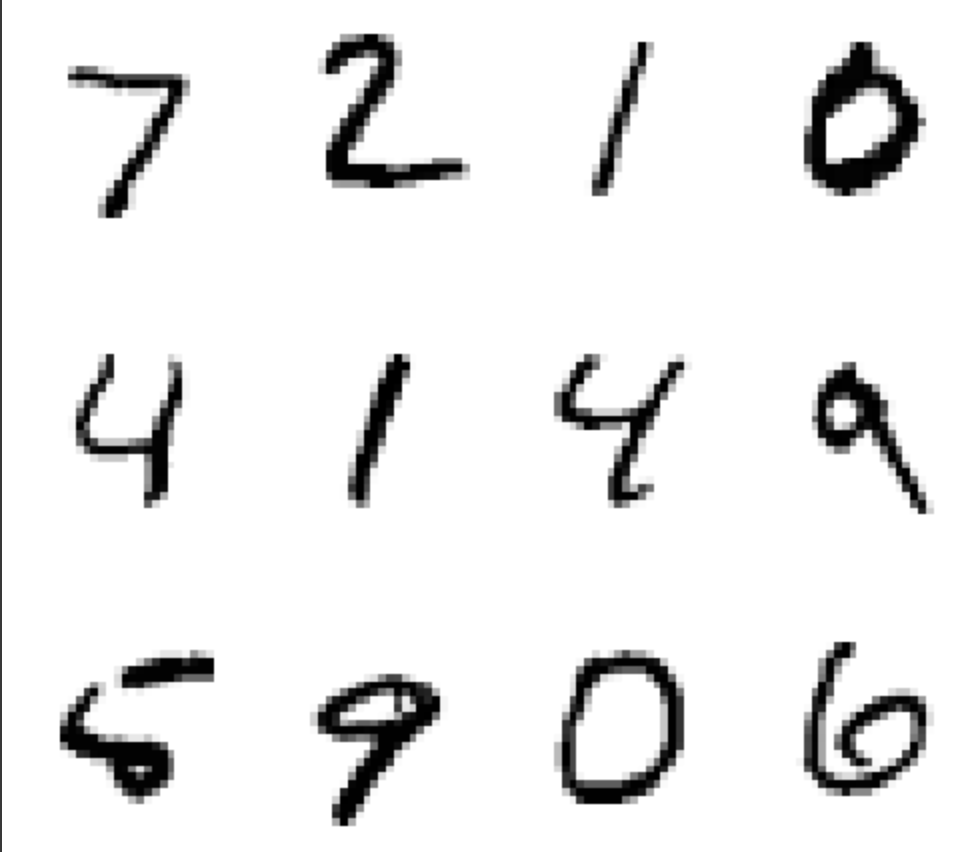 7 2 1 0
4 1 4 9
5 9 0 6